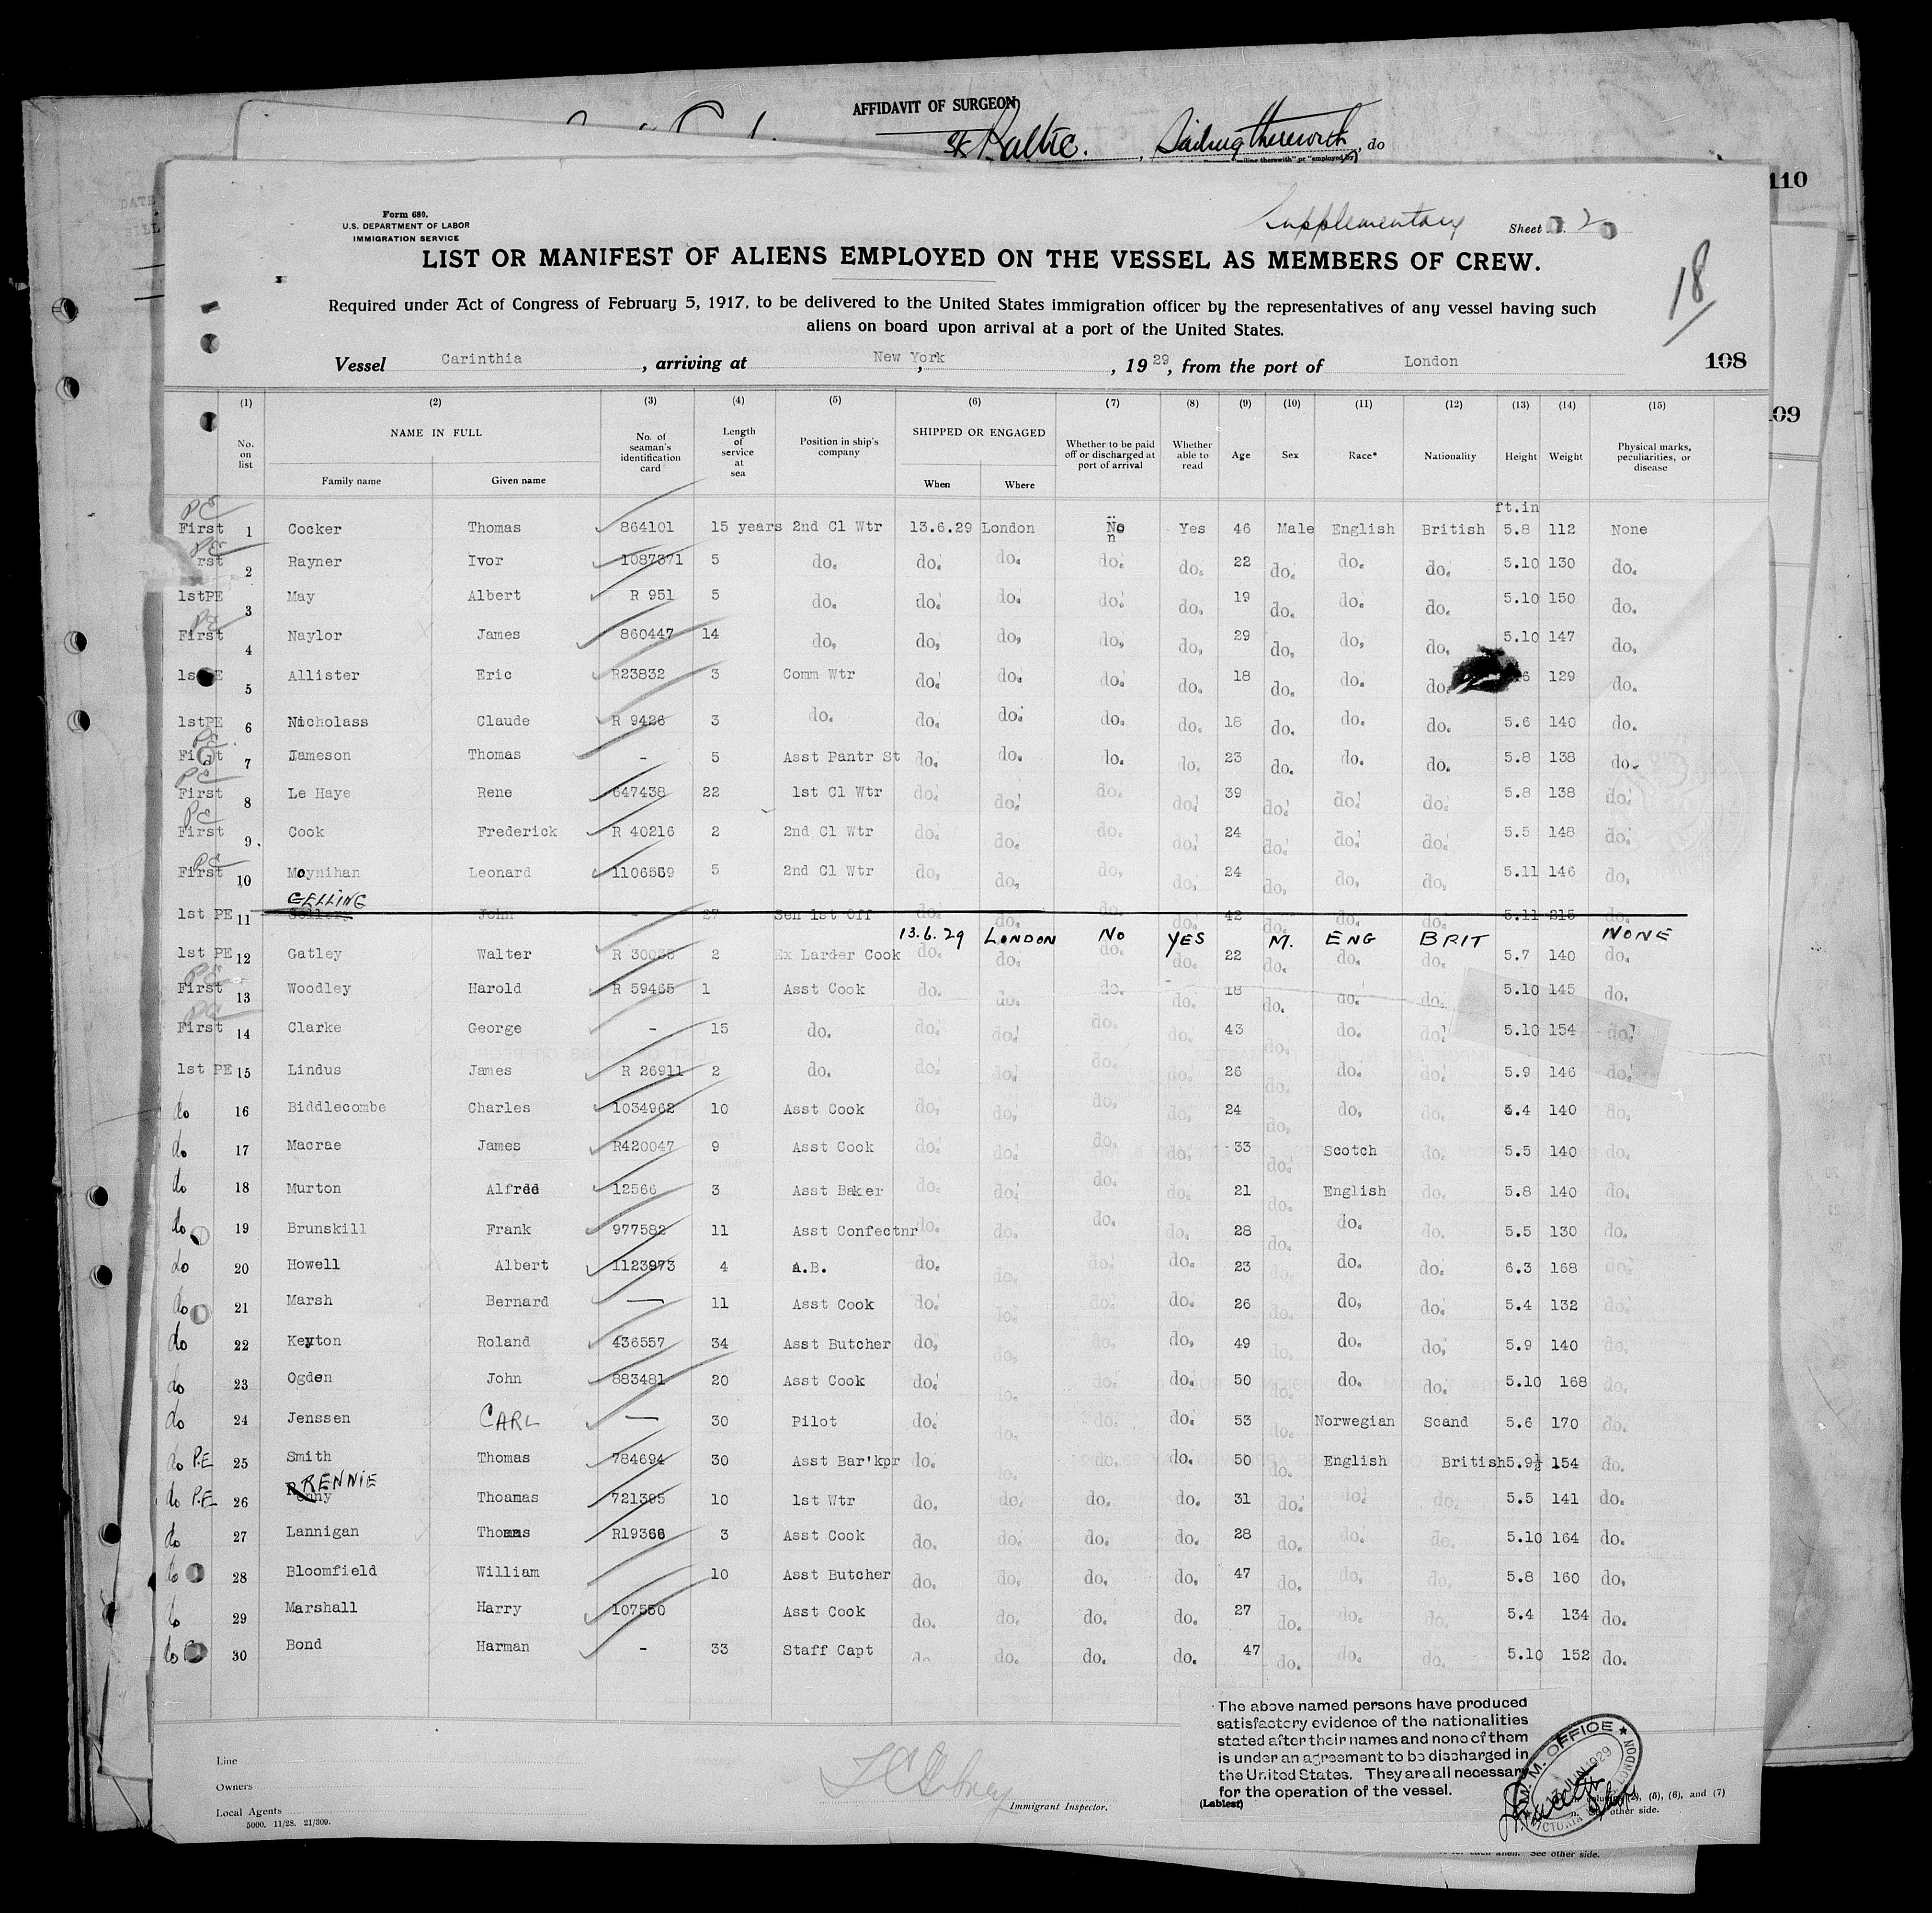 AFFIDAVIT OF SURGEON
SS Baltic. , Sailing therewith, do
110
Form 689.
U.S. DEPARTMENT OF LABOR
IMMIGRATION SERVICE
Supplementary Sheet 2
LIST OR MANIFEST OF ALIENS EMPLOYED ON THE VESSEL AS MEMBERS OF CREW.
18
Required under Act of Congress of February 5, 1917, to be delivered to the United States immigration officer by the representatives of any vessel having such
aliens on board upon arrival at a port of the United States.
Vessel Carinthia , arriving at New York , 1929, from the port of London
108
09
(1) (2) (3) (4) (5) (6) (7) (8) (9) (10) (11) (12) (13) (14) (15)
No. on list NAME IN FULL Family name Given name No. of seaman's identification card Length of service at sea Position in ship's company SHIPPED OR ENGAGED When Where Whether to be paid off or discharged at port of arrival Whether able to read Age Sex Race* Nationality Height Weight Physical marks, peculiarities, or disease
ft.in
PE First 1 Cocker Thomas 864101 15 years 2nd Cl Wtr 13.6.29 London No Yes 46 Male English British 5.8 112 None
PE rst 2 Rayner Ivor 1087371 5 do. do. do. do. do. 22 do. do. do. 5.10 130 do.
1stPE 3 May Albert R 951 5 do. do. do. do. do. 19 do. do. do. 5.10 150 do.
PE First 4 Naylor James 860447 14 do. do. do. do. do. 29 do. do. do. 5.10 147 do.
1st E 5 Allister Eric R23832 3 Comm Wtr do. do. do. do. 18 do. do. do. 6 129 do.
1stPE 6 Nicholass Claude R 9426 3 do. do. do. do. do. 18 do. do. do. 5.6 140 do.
PE First 7 Jameson Thomas - 5 Asst Pantr St do. do. do. do. 23 do. do. do. 5.8 138 do.
PE First 8 Le Haye Rene 647438 22 1st Cl Wtr do. do. do. do. 39 do. do. do. 5.8 138 do.
PE First 9. Cook Frederick R 40216 2 2nd Cl Wtr do. do. do. do. 24 do. do. do. 5.5 148 do.
PE First 10 Moynihan Leonard 1106559 5 2nd Cl Wtr do. do. do. do. 24 do. do. do. 5.11 146 do.
GELLING
1st PE 11 John - 27 Sen 1st Off do. do. do. do. 42 do. do. do. 5.11 215 do.
13.6.29 LONDON NO YES M. ENG BRIT NONE
1st PE 12 Gatley Walter R 30035 2 Ex Larder Cook do. do. do. do. 22 do. do. do. 5.7 140 do.
PE First 13 Woodley Harold R 59465 1 Asst Cook do. do. do. do. 18 do. do. do. 5.10 145 do.
PE First 14 Clarke George - 15 do. do. do. do. do. 43 do. do. do. 5.10 154 do.
1st PE 15 Lindus James R 26911 2 do. do. do. do. do. 26 do. do. do. 5.9 146 do.
do 16 Biddlecombe Charles 1034962 10 Asst Cook do. do. do. do. 24 do. do. do. 5.4 140 do.
do 17 Macrae James R420047 9 Asst Cook do. do. do. do. 33 do. Scotch do. 5.5 140 do.
do 18 Murton Alfred 12566 3 Asst Baker do. do. do. do. 21 do. English do. 5.8 140 do.
do 19 Brunskill Frank 977582 11 Asst Confectnr do. do. do. do. 28 do. do. do. 5.5 130 do.
do 20 Howell Albert 1123973 4 A.B. do. do. do. do. 23 do. do. do. 6.3 168 do.
do 21 Marsh Bernard — 11 Asst Cook do. do. do. do. 26 do. do. do. 5.4 132 do.
do 22 Keyton Roland 436557 34 Asst Butcher do. do. do. do. 49 do. do. do. 5.9 140 do.
do 23 Ogden John 883481 20 Asst Cook do. do. do. do. 50 do. do. do. 5.10 168 do.
do 24 Jenssen CARL — 30 Pilot do. do. do. do. 53 do. Norwegian Scand 5.6 170 do.
do P.E 25 Smith Thomas 784694 30 Asst Bar'kpr do. do. do. do. 50 do. English British 5.9½ 154 do.
RENNIE
do P.E 26 Penny Thoamas 721395 10 1st Wtr do. do. do. do. 31 do. do. do. 5.5 141 do.
do 27 Lannigan Thomas R19366 3 Asst Cook do. do. do. do. 28 do. do. do. 5.10 164 do.
do 28 Bloomfield William 10 Asst Butcher do. do. do. do. 47 do. do. do. 5.8 160 do.
do 29 Marshall Harry 107550 Asst Cook do. do. do. do. 27 do. do. do. 5.4 134 do.
do 30 Bond Harman - 33 Staff Capt do. do. do. do. 47 do. do. do. 5.10 152 do.
The above named persons have produced
satisfactory evidence of the nationalities
stated after their names and none of them
is under an agreement to be discharged in
the United States. They are all necessary
for the operation of the vessel.
(Lablest)
M. M. OFFICE
JUN 1929
VICTORIA LONDON
Line
Owners
Local Agents
5000. 11/28. 21/309.
Immigrant Inspector.
columns (2), (5), (6), and (7)
other side.
for each alien. See other side.